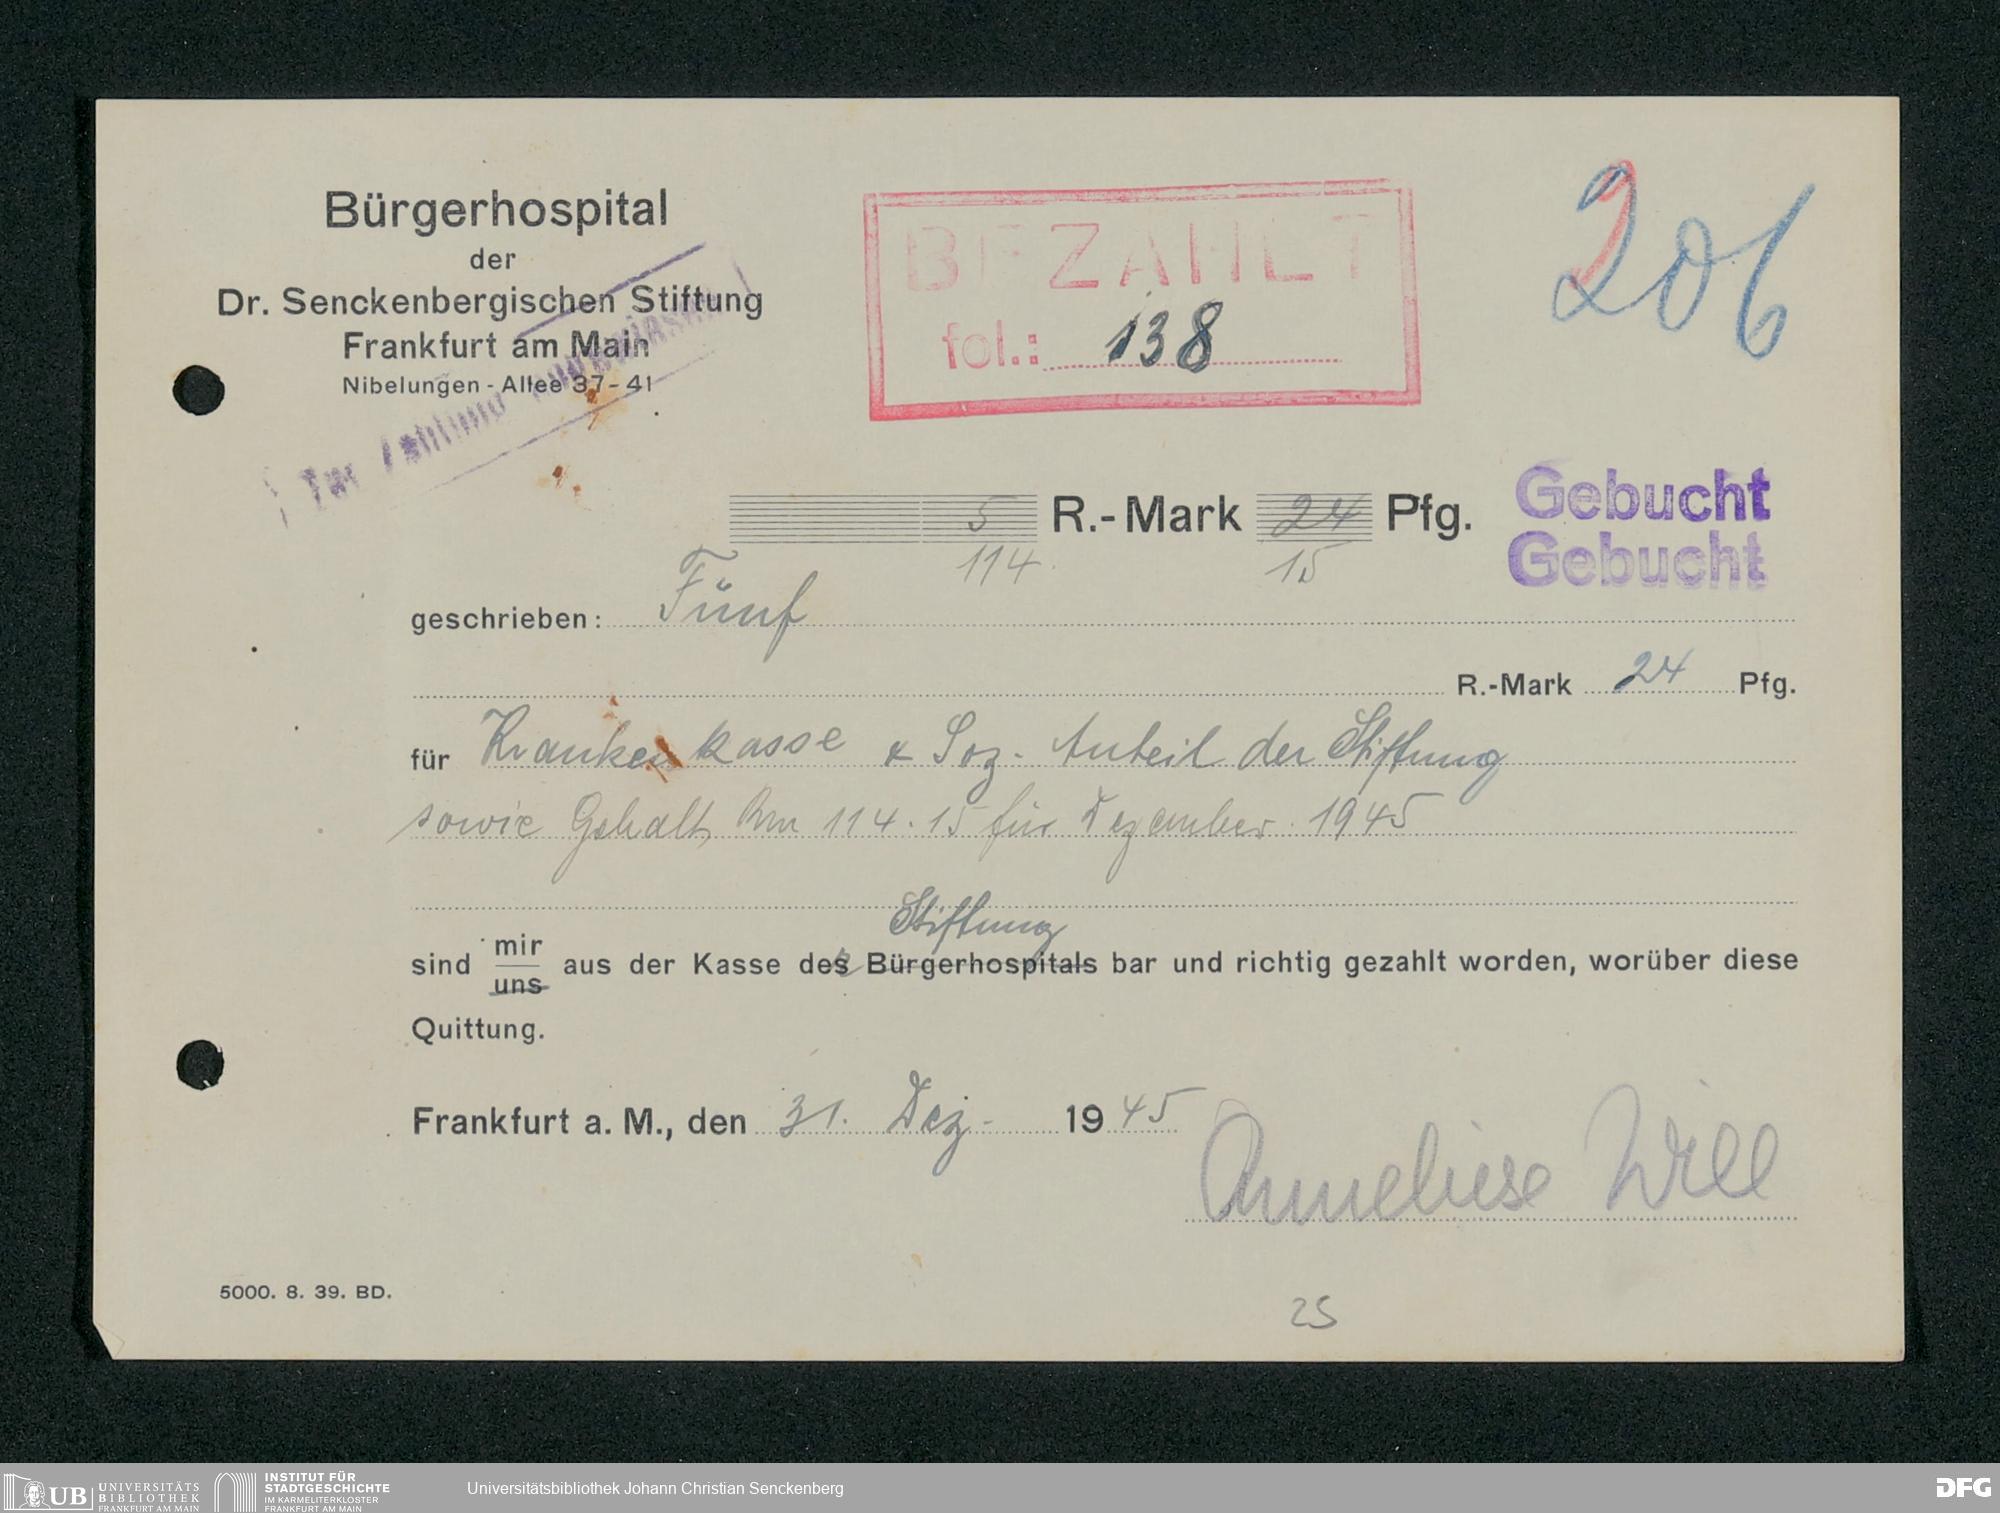 Bürgerhospital
der
Dr. Senckenbergischen Stiftung
Frankfurt am Main
Nibelungen-Allee 37-41
Zur Zahlung
BEZAHLT
fol.: 138
206
5 R.-Mark 24 Pfg.
114. 15
Gebucht
Gebucht
geschrieben: Fünf
R.-Mark 24 Pfg.
für Krankenkasse & Soz. Anteil der Stiftung
sowie Gehalt Rm 114.15 für Dezember 1945
Stiftung
sind mir uns aus der Kasse des Bürgerhospitals bar und richtig gezahlt worden, worüber diese
Quittung.
Frankfurt a. M., den 31. Dez. 1945
Anneliese Will
5000. 8. 39. BD.
25
UB UNIVERSITÄTS BIBLIOTHEK FRANKFURT AM MAIN
INSTITUT FÜR STADTGESCHICHTE IM KARMELITERKLOSTER FRANKFURT AM MAIN
Universitätsbibliothek Johann Christian Senckenberg
DFG